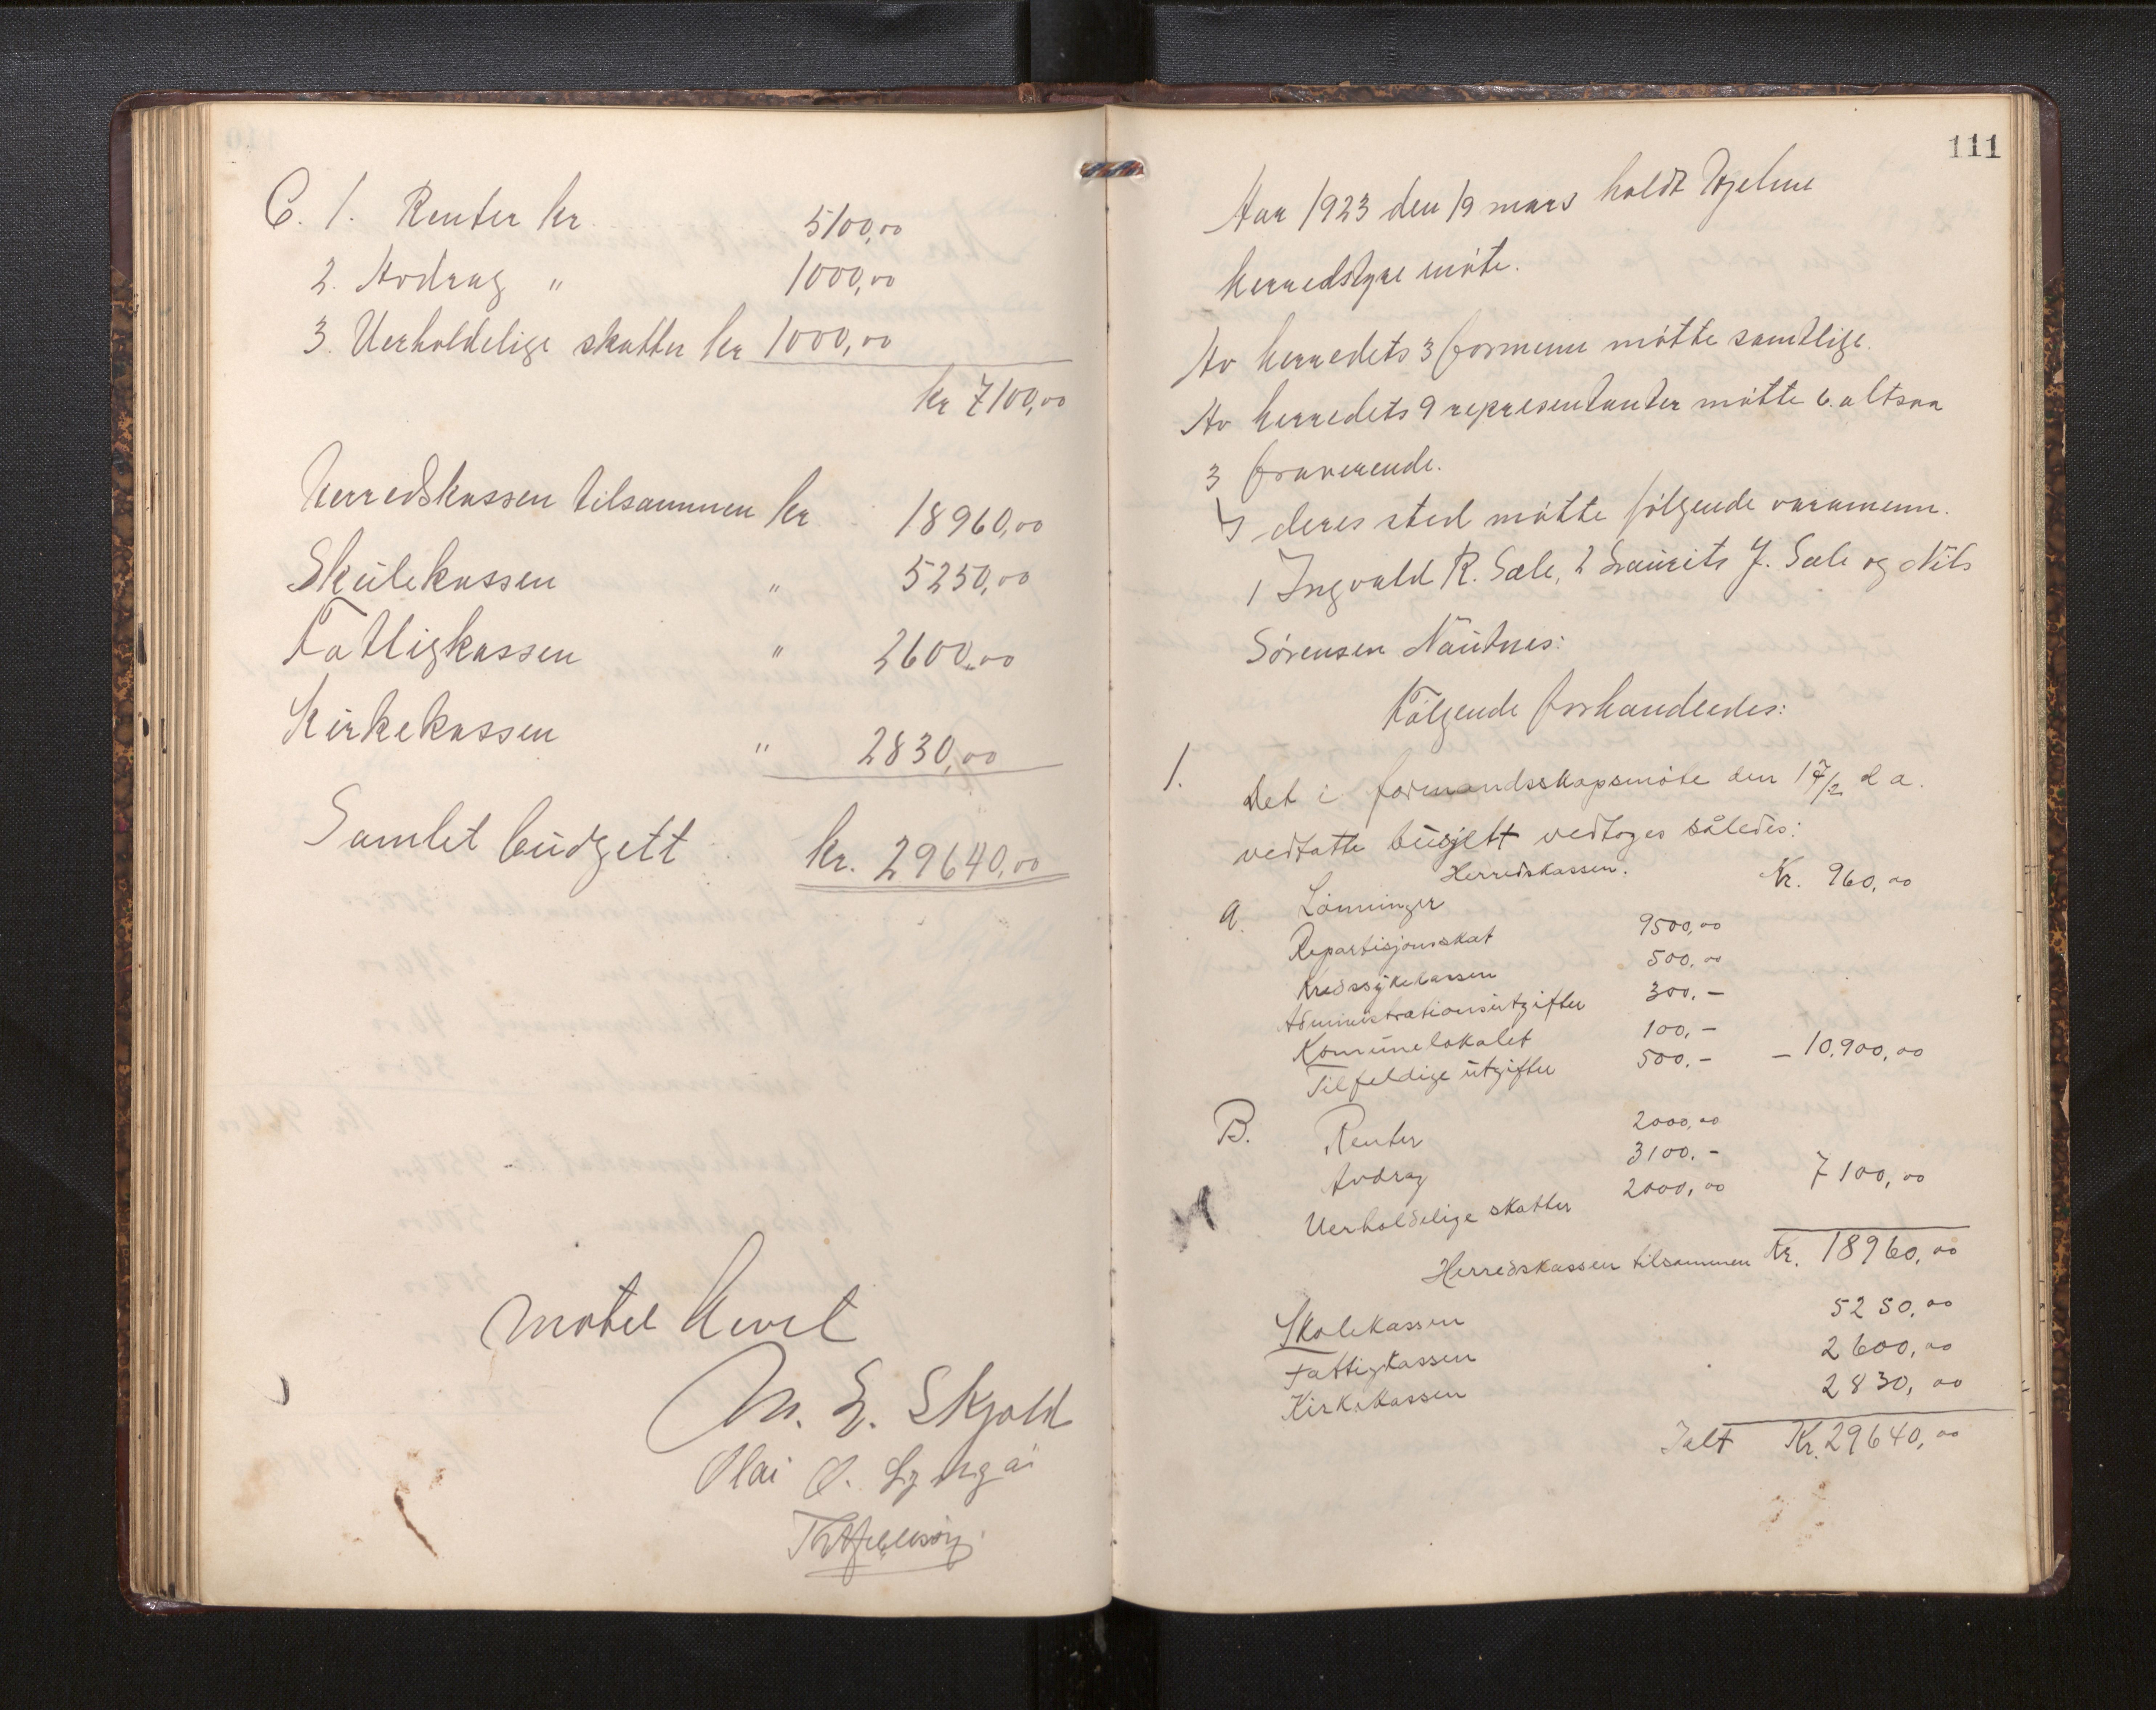 C. 1. Renter kr. 5100,00
2. Avdrag " 1000,00
3. Uerholdelige skatter kr 1000,00
kr 7100,00
Herredskassen tilsammen kr 18960,00
Skulekassen " 5250,00
Fattigkassen " 2600,00
Kirkekassen " 2830,00
Samlet budgett kr. 29640,00
møtet hevet
M. E. Skjold
Olai O.
111
Aar 1923 den 19 mars holdt Hjelme
herredstyre møte.
Av herredets 3 formenn møtte samtlige.
Av herredets 9 representanter møtte 6. altsaa
3 fraverende.
I deres sted møtte følgende varamenn.
1 Ingvald R. Sæle, 2 Laurits J. Sæle og Nils
Sørensen Nautnes:
Følgende forhandledes:
1. Det i formandsskapsmøte den 17/2 d a.
vedtatte busjett vedtoges således:
Herredskassen.
A. Lønninger Kr. 960,00
Repartisjonsskat 9500,00
Kredssykekassen 500,00
Administrationsutgifter 300,-
Komunelokalet 100,-
Tilfeldige utgifter 500,- - 10.900,00
B. Renter 2000,00
Avdrag 3100.-
Uerholdelige skatter 2000,00 7100,00
Herredskassen tilsammen Kr. 18960,00
Skolekassen 5250,00
Fattigkassen 2600,00
Kirkekassen 2830,00
Ialt Kr. 29640,00